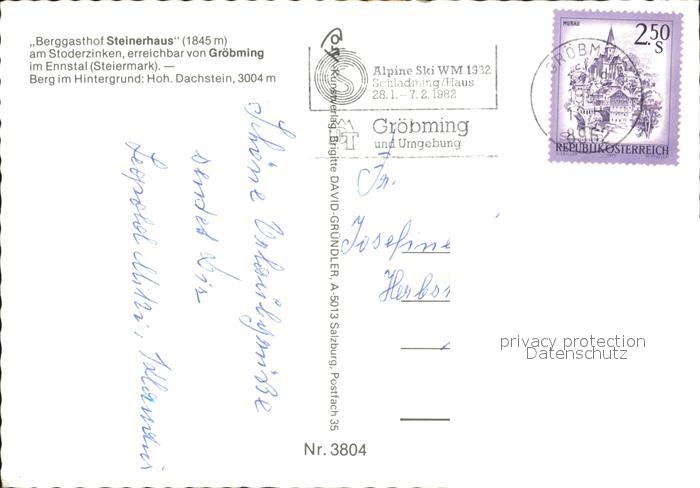 „Berggasthof Steinerhaus" (1845 m)
am Stoderzinken, erreichbar von Gröbming
im Ennstal (Steiermark). —
Berg im Hintergrund: Hoh. Dachstein, 3004 m
Alpine Ski WM 1982
Schladming/Haus
28.1. – 7.2. 1982
Gröbming
und Umgebung
GRÖBM
8962
MURAU
2.50
S
REPUBLIK ÖSTERREICH
Kunstverlag Brigitte DAVID-GRÜNDLER, A-5013 Salzburg, Postfach 35
Schöne Urlaubsgrüße
sendet Dir
Leopold
Fr.
Josefine
Nr. 3804
privacy protection
Datenschutz